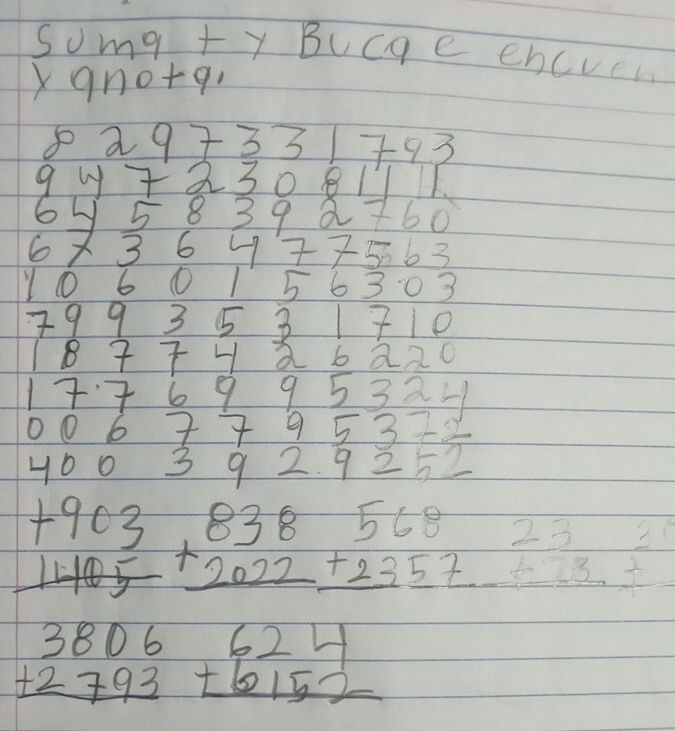 Suma + y Bucqe encuen
y anota.
8 2 9 7 3 3 1 7 9 3
9 4 7 2 3 0 8 1 1 1
6 4 5 8 3 9 2 7 6 0
6 7 3 6 4 7 7 5 6 3
1 0 6 0 1 5 6 3 0 3
7 9 9 3 5 3 1 7 1 0
1 8 7 7 4 2 6 2 2 0
1 7 7 6 9 9 5 3 2 4
0 0 6 7 7 9 5 3 7 2
4 0 0 3 9 2 9 2 5 2
+903 838 568 23
1405 +2022 +2357 +
3806 624
+2793 +6152